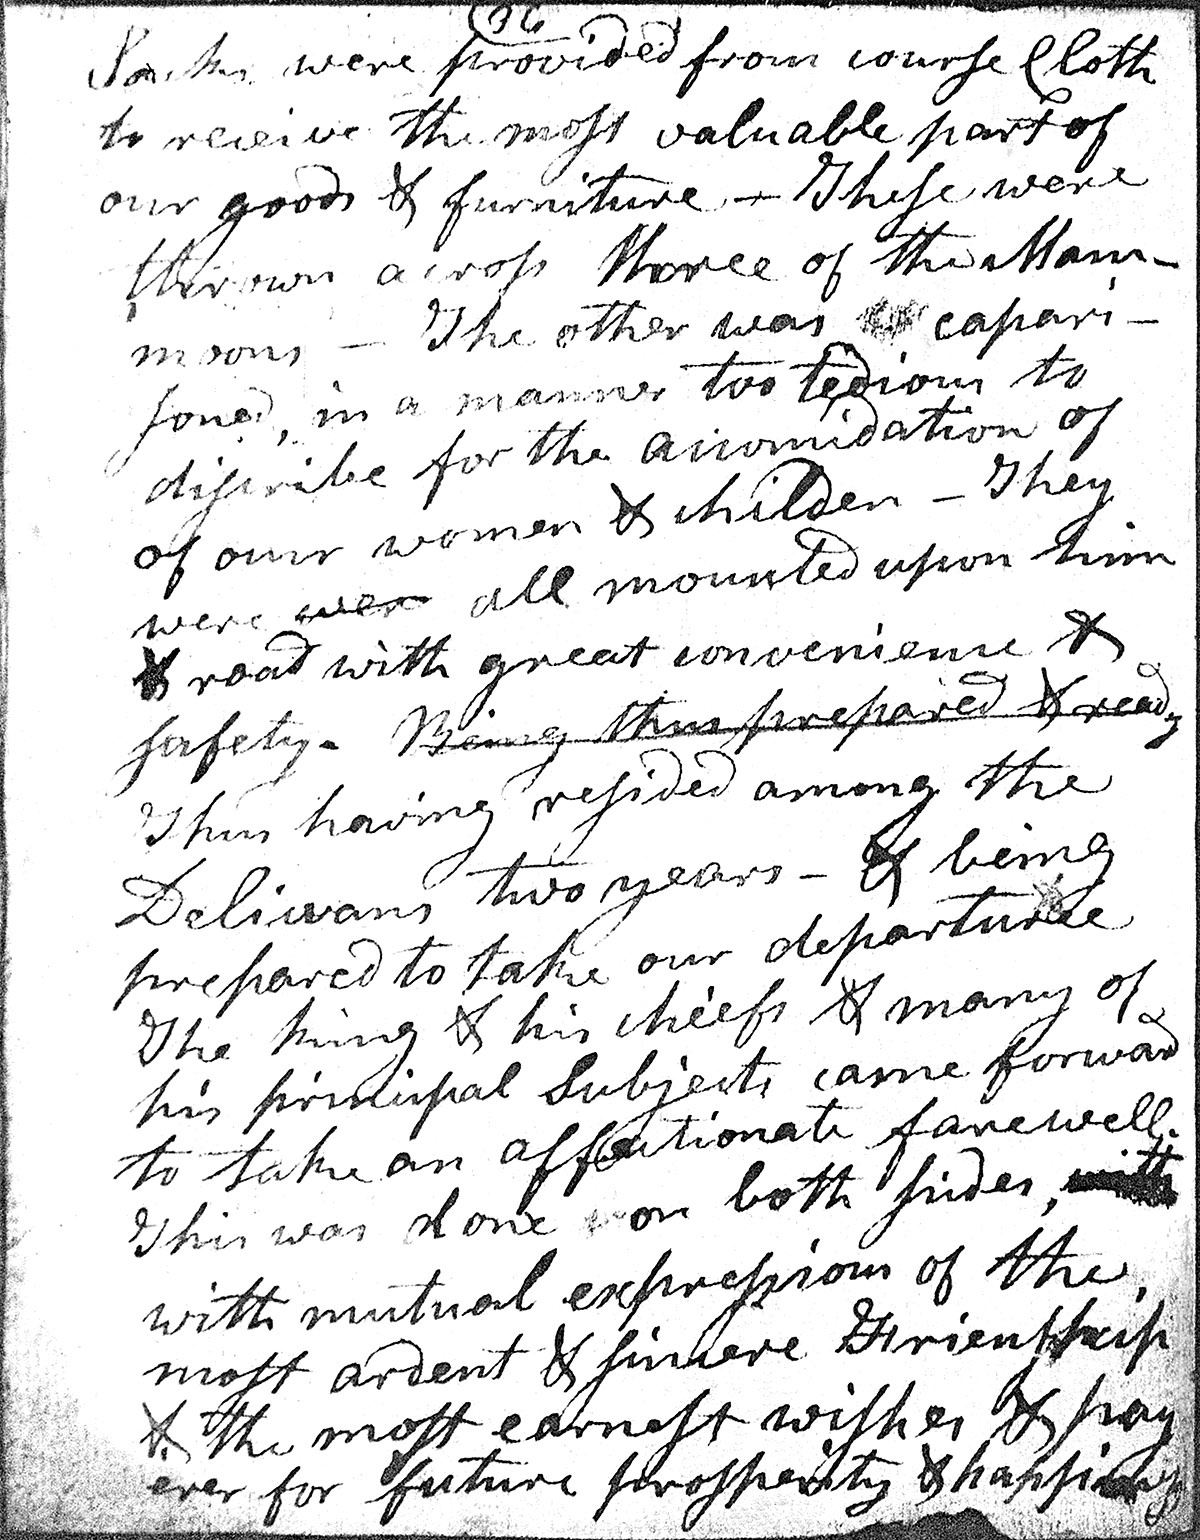 (36
Sacks were provided from course Cloth
to receive the most valuable part of
our goods & furniture — These were
thrown across three of the Mam-
moons — The other was capari-
soned, in a manner too tedious to
discribe for the accomidation of
of our women & childen — They
were wer all mounted upon him
& road with great convenience &
safety - Being thus prepared & ready
Thus having resided among the
Deliwans two years — & being
prepared to take our departuree
The king & his cheefs & many of
his principal Subjects came forward
to take an affectionate farewell.
This was done on both sides, with
with mutual expressions of the
most ardent & sincere Frienship
& the most earnest wishes & pray
erer for future prosperity & happiness